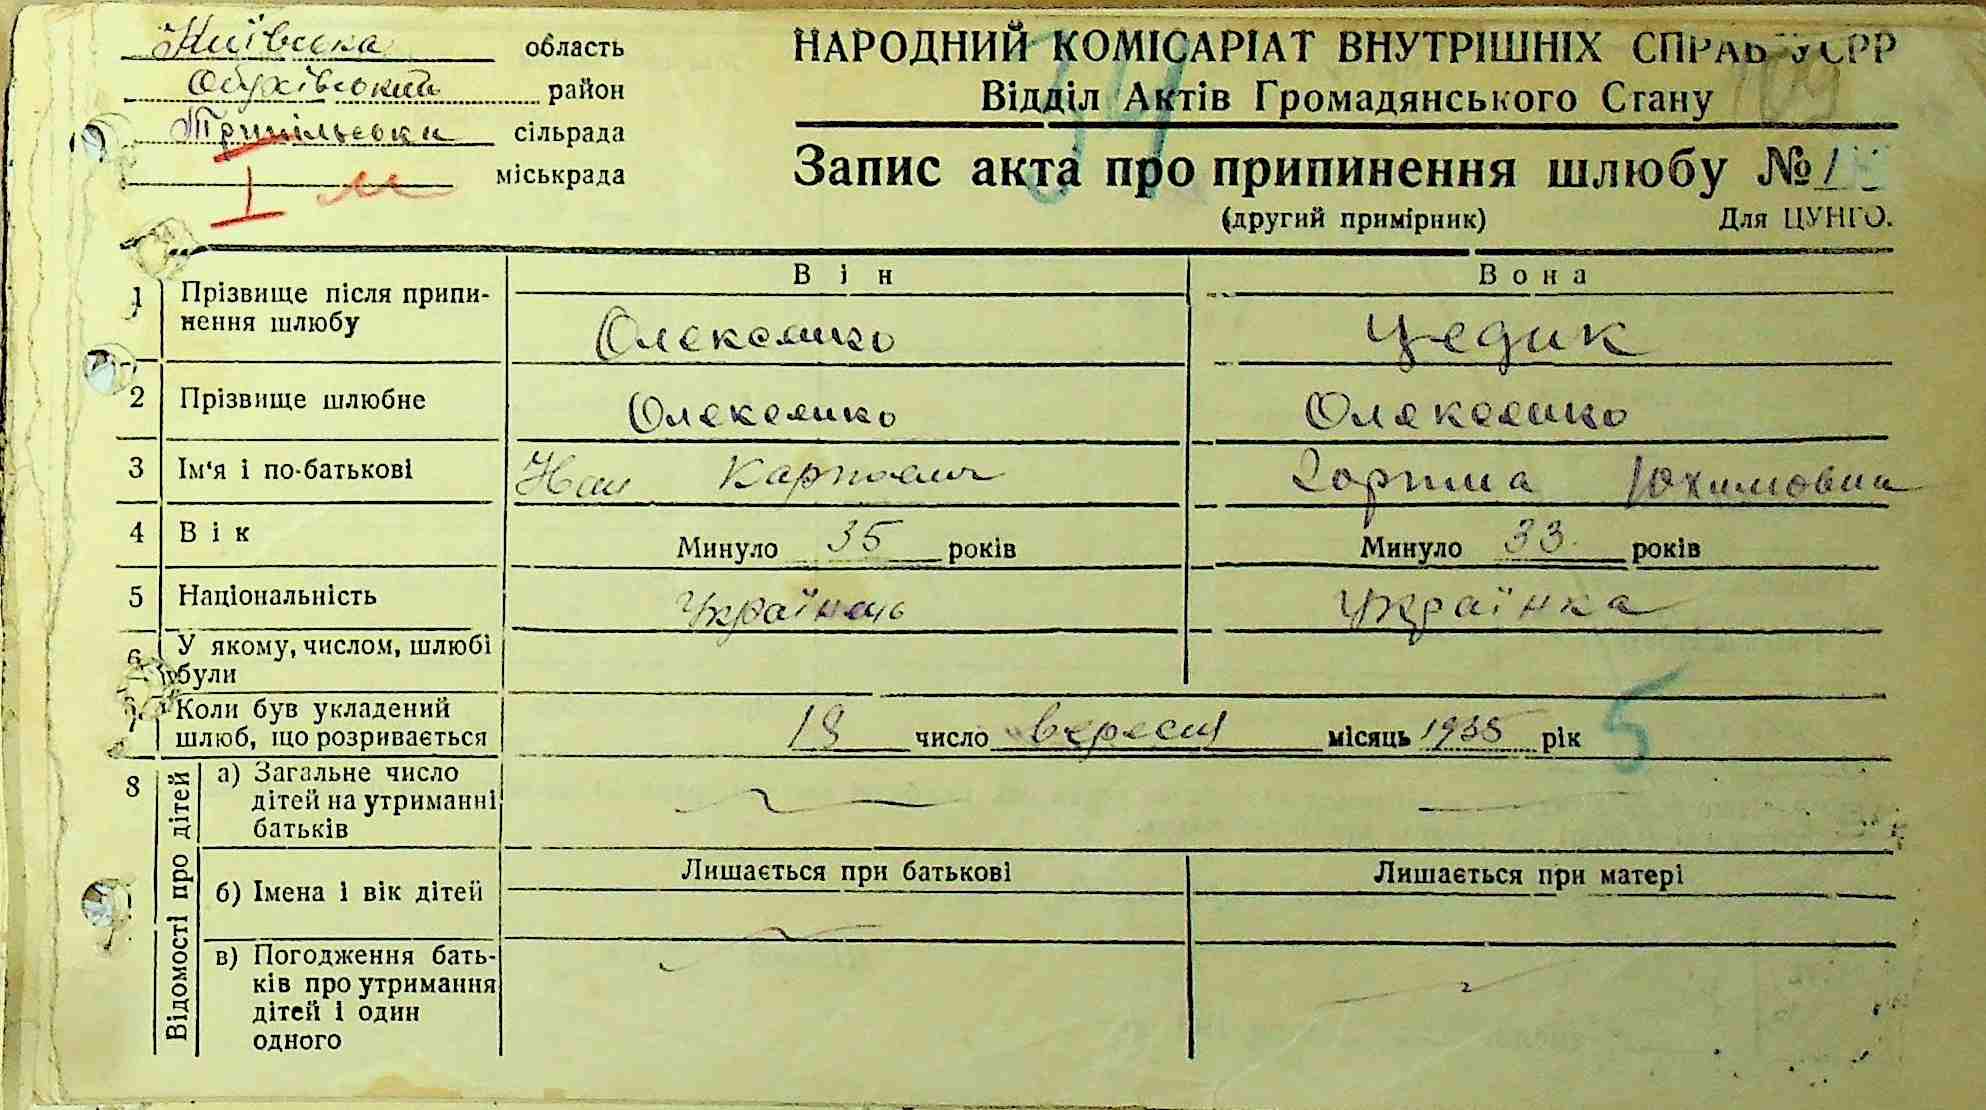 Київська область
Обухівський район
Трипільська сільрада
міськрада
I м
НАРОДНИЙ КОМІСАРІАТ ВНУТРІШНІХ СПРАВ УСРР
Відділ Актів Громадянського Стану
109
Запис акта про припинення шлюбу №
(другий примірник) Для ЦУНГО.
Він Вона
1 Прізвище після припи-
нення шлюбу
Олексенко Цедик
2 Прізвище шлюбне Олексенко Олексенко
3 Ім'я і по-батькові Карпович Горпина Юхимовна
4 Вік Минуло 35 років Минуло 33 років
5 Національність Українець Українка
6 У якому, числом, шлюбі
були
7 Коли був укладений
шлюб, що розривається
18 число вересня місяць 1935 рік
5
8 Відомості про дітей
а) Загальне число
дітей на утриманні
батьків
Лишається при батькові Лишається при матері
б) Імена і вік дітей
в) Погодження бать-
ків про утримання
дітей і один
одного